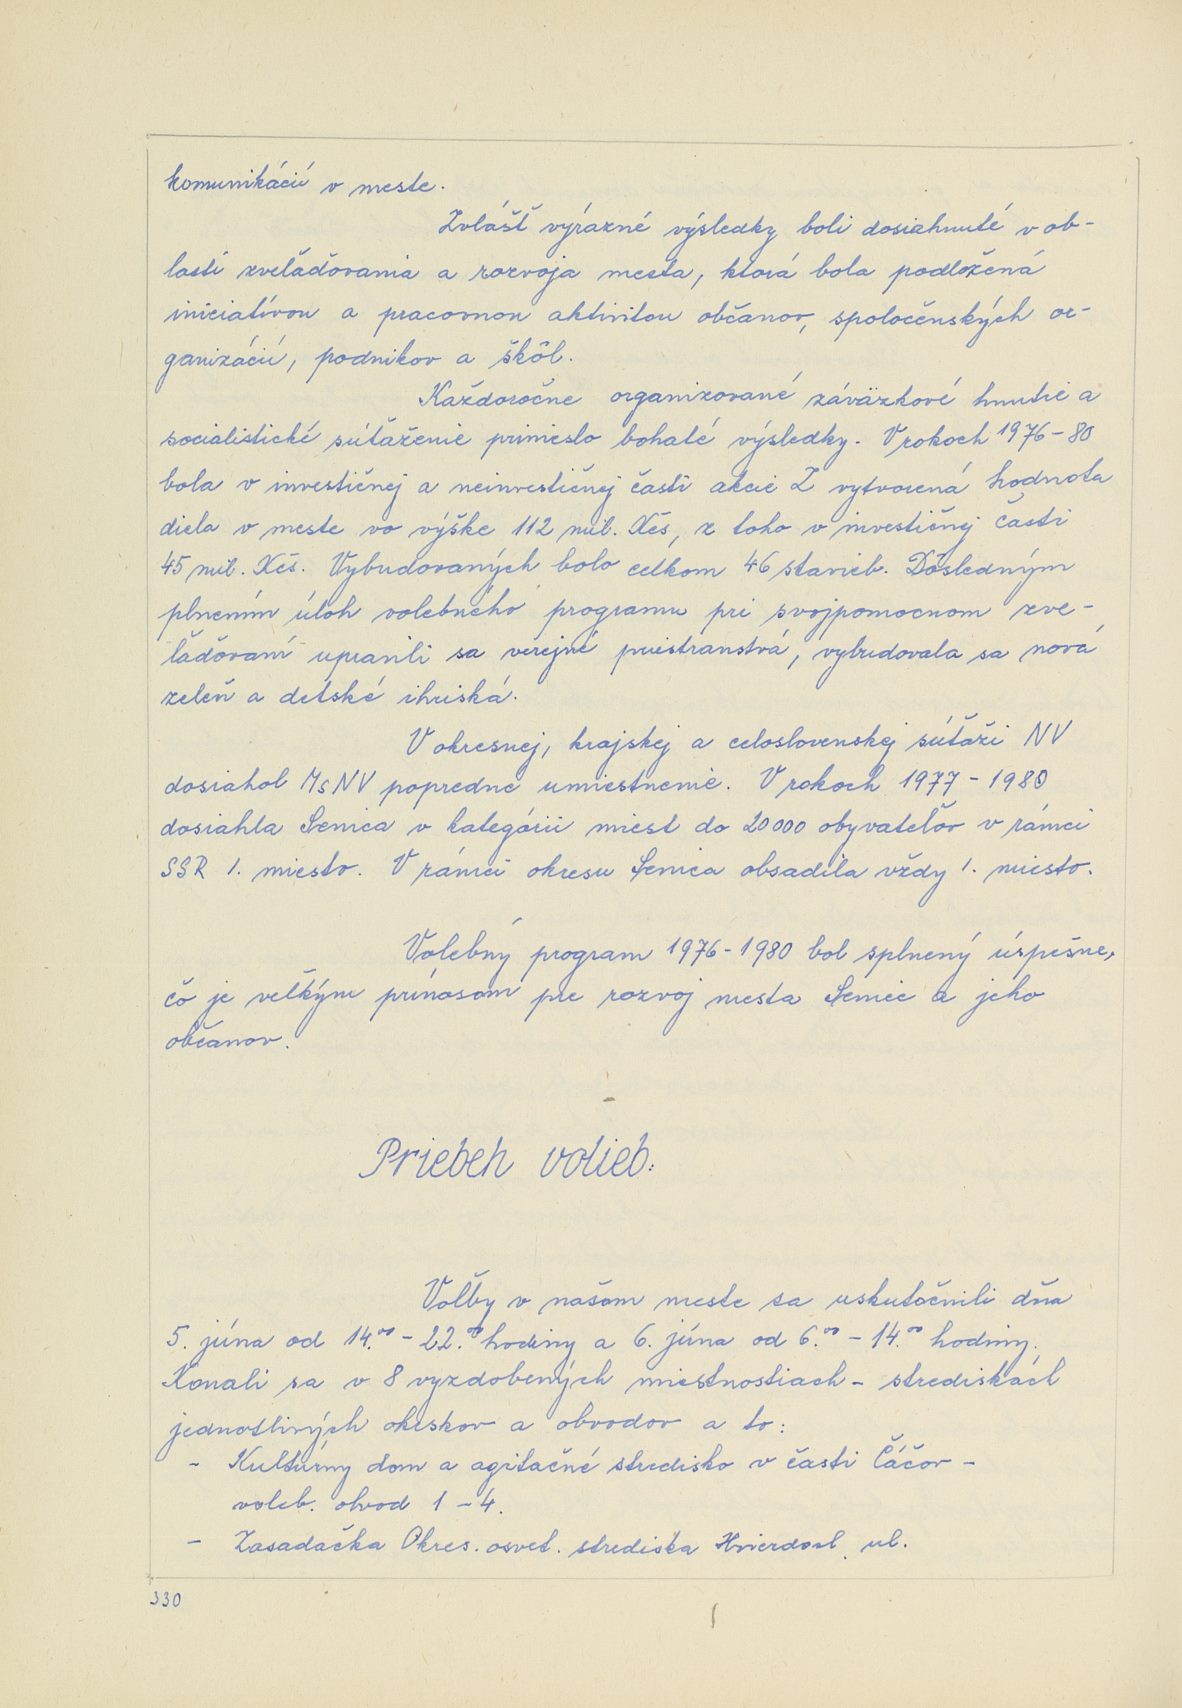 komunikácií v meste.
Zvlášť výrazné výsledky boli dosiahnuté v ob-
lasti zveľaďovania a rozvoja mesta, ktorá bola podložená
iniciatívou a pracovnou aktivitou občanov, spoločenských or-
ganizácií, podnikov a škôl.
Každoročne organizované záväzkové hnutie a
socialistické súťaženie prinieslo bohaté výsledky. V rokoch 1976-80
bola v investičnej a neinvestičnej časti akcie Z vytvorená hodnota
diela v meste vo výške 112 mil. Kčs, z toho v investičnej časti
45 mil. Kčs. Vybudovaných bolo celkom 46 stavieb. Dôsledným
plnením úloh volebného programu pri svojpomocnom zve-
ľaďovaní upravili sa verejné priestranstvá, vybudovala sa nová
zeleň a detské ihriská.
V okresnej, krajskej a celoslovenskej súťaži NV
dosiahol MsNV popredné umiestnenie. V rokoch 1977-1980
dosiahla Senica v kategórii miest do 20 000 obyvateľov v rámci
SSR 1. miesto. V rámci okresu Senica obsadila vždy 1. miesto.
Volebný program 1976-1980 bol splnený úspešne,
čo je veľkým prínosom pre rozvoj mesta Senice a jeho
občanov.
Priebeh volieb:
Voľby v našom meste sa uskutočnili dňa
5. júna od 14.⁰⁰ - 22.⁰⁰ hodiny a 6. júna od 6.⁰⁰ - 14.⁰⁰ hodiny.
Konali sa v 8 vyzdobených miestnostiach - strediskách
jednotlivých okrskov a obvodov a to:
- Kultúrny dom a agitačné stredisko v časti Čáčov -
voleb. obvod 1-4.
- Zasadačka Okres. osvet. strediska Hviezdosl. ul.
330